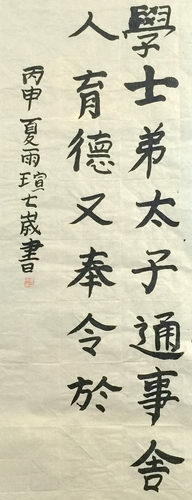 學士弟太子通事舍
人育德又奉令於
丙申夏雨瑄七歲書